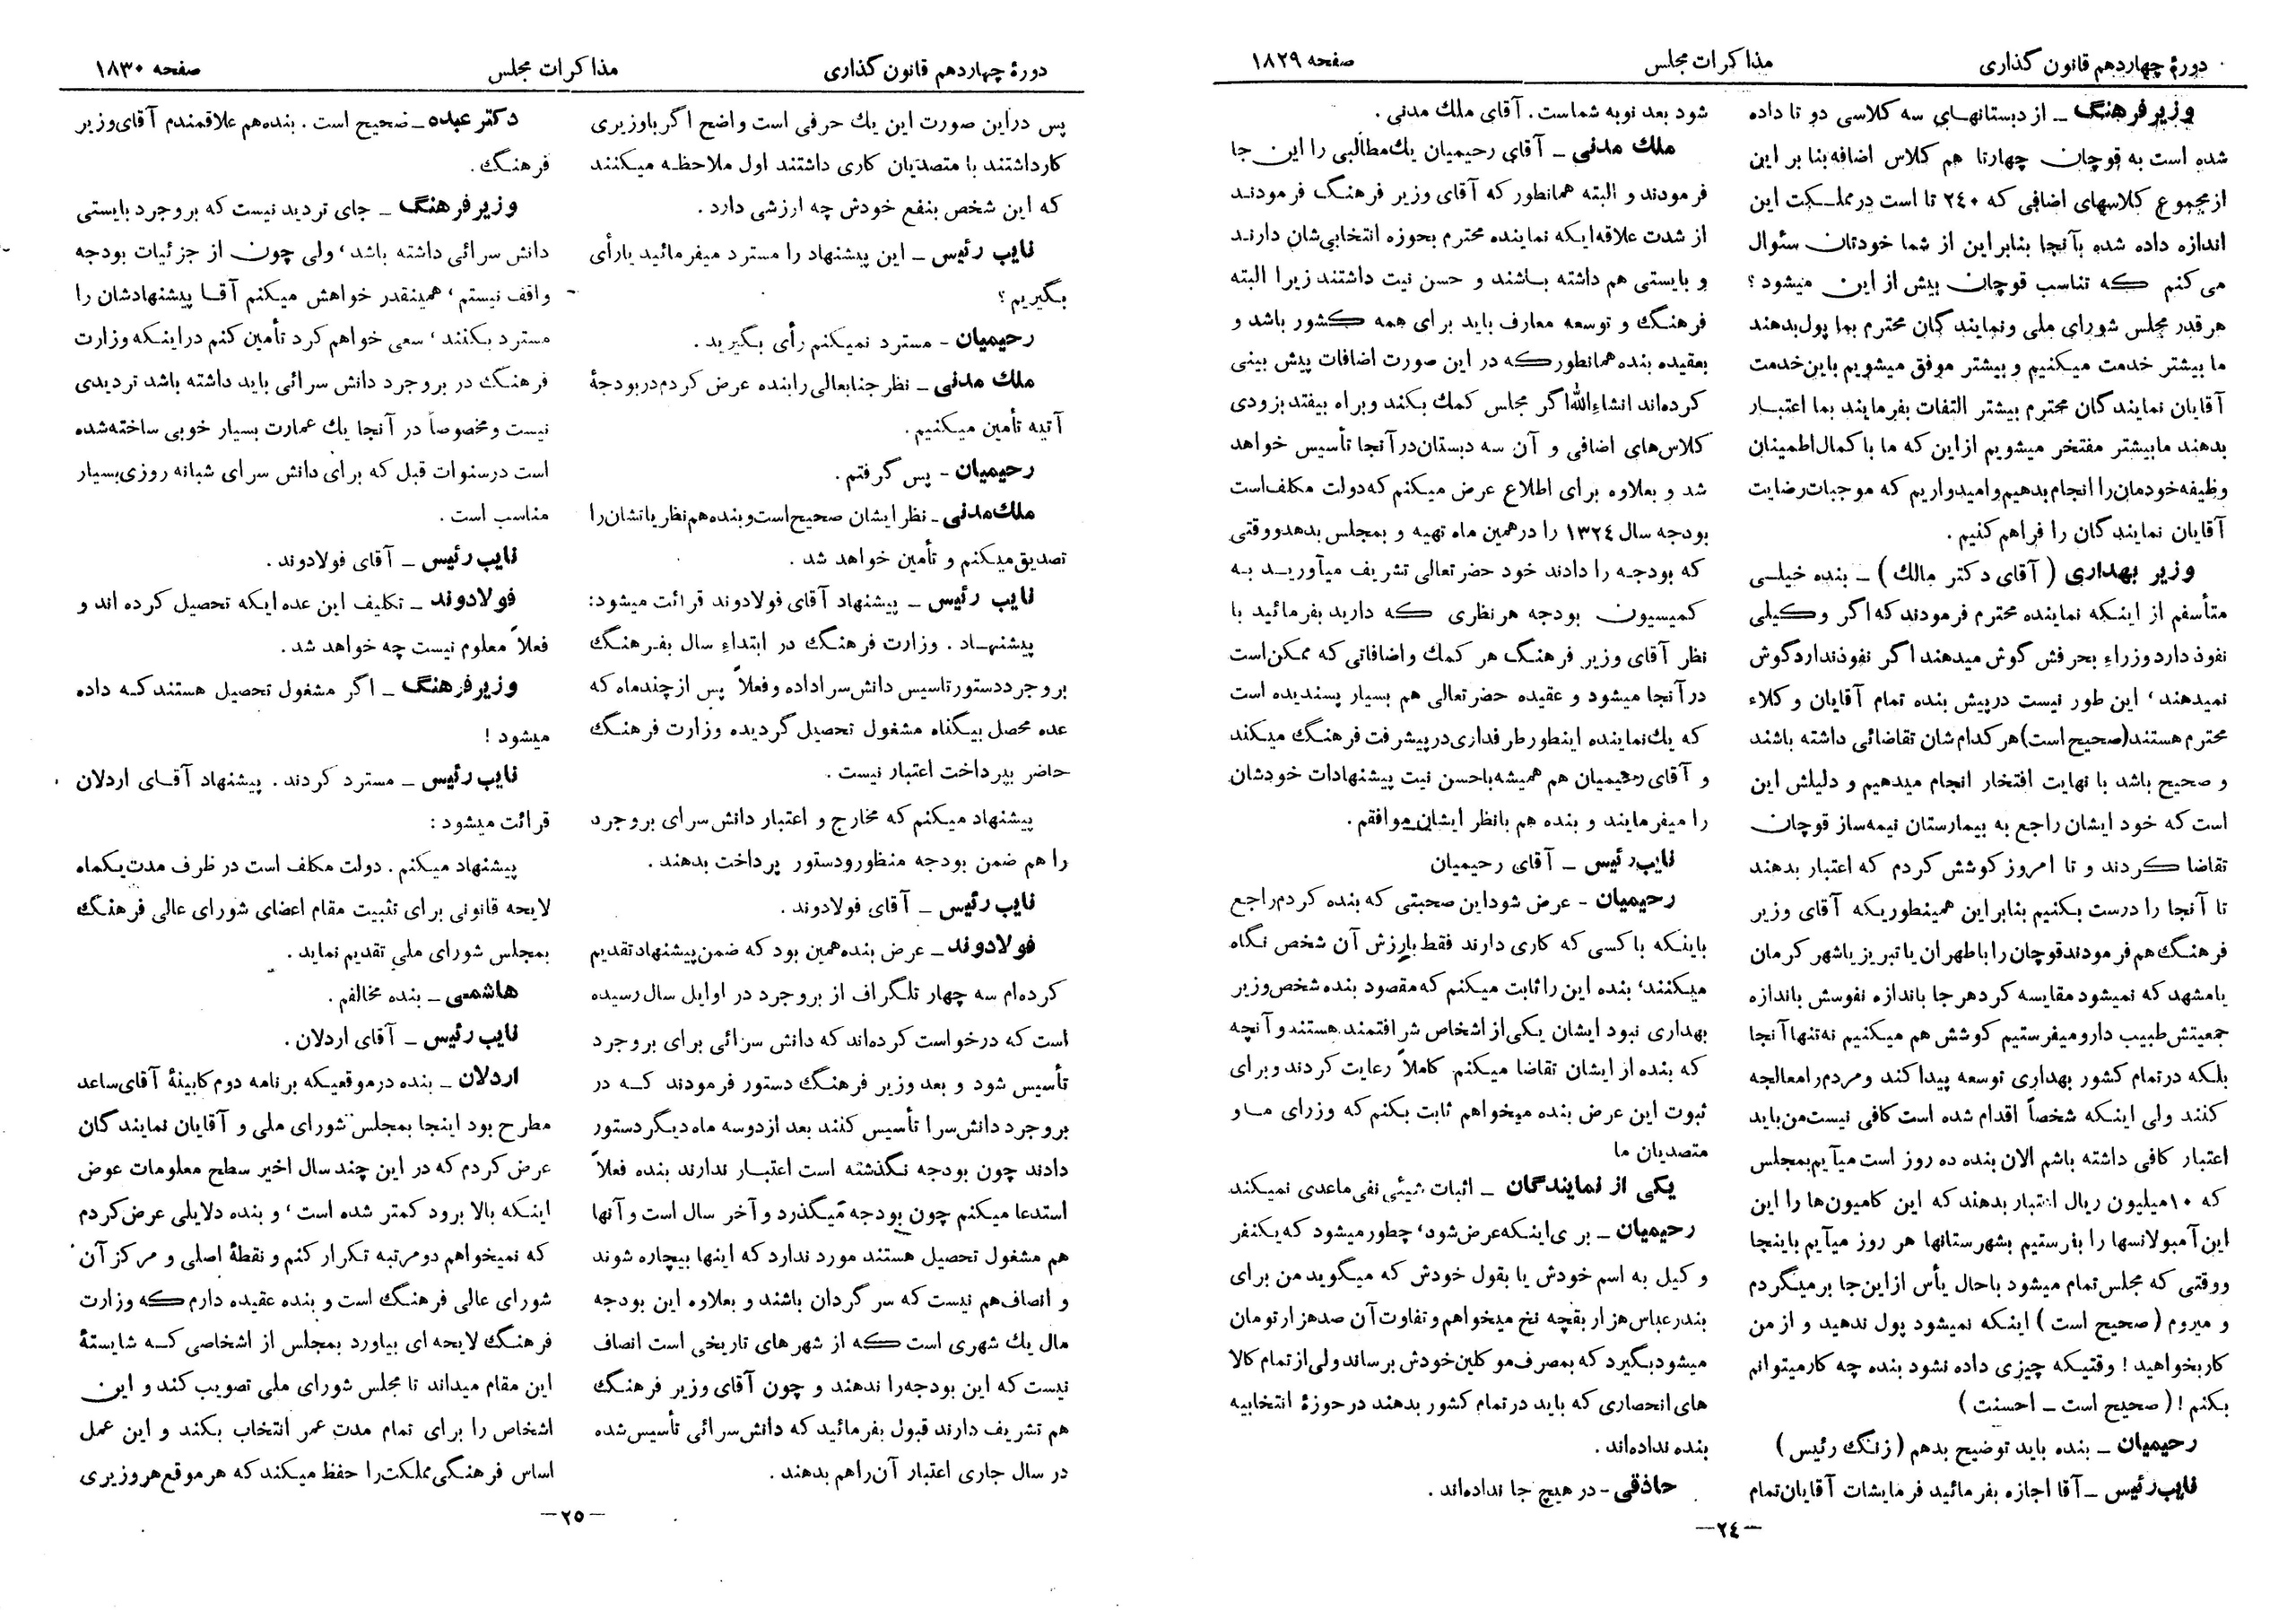 دورهٔ چهاردهم قانون گذاری
مذاکرات مجلس
صفحه ۱۸۲۹
وزیر فرهنگ ــ از دبستانهـای سه کلاسی دو تا داده
شده است به قوچان چهارتا هم کلاس اضافه بنا بر این
از مجموع کلاسهای اضافی که ۲٤۰ تا است در مملکت این
اندازه داده شده بآنجا بنابراین از شما خودتان سئوال
می کنم که تناسب قوچان بیش از این میشود ؟
هر قدر مجلس شورای ملی و نمایندگان محترم بما پول بدهند
ما بیشتر خدمت میکنیم و بیشتر موفق میشویم باین خدمت
آقایان نمایندگان محترم بیشتر التفات بفرمایند بما اعتبـار
بدهند ما بیشتر مفتخر میشویم از این که ما با کمال اطمینان
وظیفه خودمان را انجام بدهیم و امیدواریم که موجبات رضایت
آقایان نمایندگان را فراهم کنیم .
وزیر بهداری ( آقای دکتر مالك ) ــ بنده خیلـی
متأسفم از اینکه نماینده محترم فرمودند که اگر وکیلی
نفوذ دارد وزراء بحرفش گوش میدهند اگر نفوذ ندارد گوش
نمیدهند ، این طور نیست در پیش بنده تمام آقایان و کلاء
محترم هستند (صحیح است) هر کدام شان تقاضائی داشته باشند
و صحیح باشد با نهایت افتخار انجام میدهیم و دلیلش این
است که خود ایشان راجع به بیمارستان نیمه ساز قوچان
تقاضا کردند و تا امروز کوشش کردم که اعتبار بدهند
تا آنجا را درست بکنیم بنابراین همینطوریکه آقای وزیر
فرهنگ هم فرمودند قوچان را با طهران یا تبریز یا شهر کرمان
یا مشهد که نمیشود مقایسه کرد هر جا باندازه نفوسش باندازه
جمعیتش طبیب دارو میفرستیم کوشش هم میکنیم نه تنها آنجا
بلکه در تمام کشور بهداری توسعه پیدا کند و مردم را معالجه
کنند ولی اینکه شخصاً اقدام شده است کافی نیست من باید
اعتبار کافی داشته باشم الان بنده ده روز است میآیم بمجلس
که ۱۰ میلیون ریال اعتبار بدهند که این کامیون ها را این
این آمبولانسها را بفرستیم بشهرستانها هر روز میآیم باینجا
و وقتی که مجلس تمام میشود با حال یأس از این جا بر میگردم
و میروم ( صحیح است ) اینکه نمیشود پول ندهید و از من
کار بخواهید ! وقتیکه چیزی داده نشود بنده چه کار میتوانم
بکنم ! ( صحیح است ــ احسنت )
رحیمیان ــ بنده باید توضیح بدهم ( زنگ رئیس )
نایب رئیس ــ آقا اجازه بفرمائید فرمایشات آقایان تمام
شود بعد نوبه شماست . آقای ملك مدنی .
ملك مدنی ــ آقای رحیمیان یك مطالبی را این جا
فرمودند و البته همانطور که آقای وزیر فرهنگ فرمودنـد
از شدت علاقه ایکه نماینده محترم بحوزه انتخابی شان دارند
و بایستی هم داشته بـاشند و حسن نیت داشتند زیرا البته
فرهنگ و توسعه معارف باید برای همه کشور باشد و
بعقیده بنده همانطور که در این صورت اضافات پیش بینی
کرده اند انشاء الله اگر مجلس کمك بکند و براه بیفتد بزودی
کلاس های اضافی و آن سه دبستان در آنجا تأسیس خواهد
شد و بعلاوه برای اطلاع عرض میکنم که دولت مکلف است
بودجه سال ۱۳۲٤ را در همین ماه تهیه و بمجلس بدهد و وقتی
که بودجـه را دادند خود حضرتعالی تشریف میآوریـد بـه
کمیسیون بودجه هر نظری که دارید بفرمائید با
نظر آقای وزیر فرهنگ هر کمك و اضافاتی که ممکن است
در آنجا میشود و عقیده حضرتعالی هم بسیار پسندیده است
که یك نماینده اینطور طرفداری در پیشرفت فرهنگ میکند
و آقای رحیمیان هم همیشه با حسن نیت پیشنهادات خودشان
را میفرمایند و بنده هم با نظر ایشان موافقم .
نایب رئیس ــ آقای رحیمیان
رحیمیان - عرض شود این صحبتی که بنده کردم راجع
باینکه با کسی که کاری دارند فقط بارزش آن شخص نگاه
میکنند، بنده این را ثابت میکنم که مقصود بنده شخص وزیر
بهداری نبود ایشان یکی از اشخاص شرافتمند هستند و آنچه
که بنده از ایشان تقاضا میکنم کاملاً رعایت کردند و برای
ثبوت این عرض بنده میخواهم ثابت بکنم که وزرای مـا و
متصدیان ما
یکی از نمایندگان ــ اثبات شیئی نفی ماعدی نمیکند
رحیمیان ــ بر ی اینکه عرض شود، چطور میشود که یکنفر
وکیل به اسم خودش یا بقول خودش که میگوید من برای
بندر عباس هزار بقچه نخ میخواهم و تفاوت آن صد هزار تومان
میشود بگیرد که بمصرف موکلین خودش برساند ولی از تمام کالا
های انحصاری که باید در تمام کشور بدهند در حوزهٔ انتخابیه
بنده نداده اند .
حاذقی - در هیچ جا نداده اند .
ــ۲٤ــ
دورهٔ چهاردهم قانون گذاری
مذاکرات مجلس
صفحه ۱۸۳۰
پس در این صورت این یك حرفی است واضح اگر با وزیری
کار داشتند با متصدیان کاری داشتند اول ملاحظـه میکنند
که این شخص بنفع خودش چه ارزشی دارد .
نایب رئیس ــ این پیشنهاد را مسترد میفرمائید یا رأی
بگیریم ؟
رحیمیان - مسترد نمیکنم رأی بگیرید .
ملك مدنی ــ نظر جنابعالی را بنده عرض کردم در بودجهٔ
آتیه تأمین میکنیم .
رحیمیان - پس گرفتم .
ملك مدنی ــ نظر ایشان صحیح است و بنده هم نظریاتشان را
تصدیق میکنم و تأمین خواهد شد .
نایب رئیس ــ پیشنهاد آقای فولادوند قرائت میشود:
پیشنهـاد . وزارت فرهنگ در ابتداء سال بفرهنگ
بروجرد دستور تاسیس دانش سرا داده و فعلاً پس از چند ماه که
عده محصل بیگناه مشغول تحصیل گردیده وزارت فرهنگ
حاضر بپرداخت اعتبار نیست .
پیشنهاد میکنم که مخارج و اعتبار دانش سرای بروجرد
را هم ضمن بودجه منظور و دستور پرداخت بدهند .
نایب رئیس ــ آقای فولادوند .
فولادوند ــ عرض بنده همین بود که ضمن پیشنهاد تقدیم
کرده ام سه چهار تلگراف از بروجرد در اوایل سال رسیده
است که درخواست کرده اند که دانش سرائی برای بروجرد
تأسیس شود و بعد وزیر فرهنگ دستور فرمودند کـه در
بروجرد دانش سرا تأسیس کنند بعد از دو سه ماه دیگر دستور
دادند چون بودجه نگذشته است اعتبـار ندارند بنده فعلاً
استدعا میکنم چون بودجه میگذرد و آخر سال است و آنها
هم مشغول تحصیل هستند مورد ندارد که اینها بیچاره شوند
و انصاف هم نیست که سر گردان باشند و بعلاوه این بودجه
مال یك شهری است که از شهر های تاریخی است انصاف
نیست که این بودجه را ندهند و چون آقای وزیر فرهنگ
هم تشریف دارند قبول بفرمائید که دانش سرائی تأسیس شده
در سال جاری اعتبار آن را هم بدهند .
دکتر عبده ــ صحیح است . بنده هم علاقمندم آقای وزیر
فرهنگ .
وزیر فرهنگ ــ جای تردید نیست که بروجرد بایستی
دانش سرائی داشته باشد ، ولی چون از جزئیات بودجه
واقف نیستم ، همینقدر خواهش میکنم آقـا پیشنهادشان را
مسترد بکنند ، سعی خواهم کرد تأمین کنم در اینکه وزارت
فرهنگ در بروجرد دانش سرائی باید داشته باشد تردیدی
نیست و مخصوصاً در آنجا یك عمارت بسیار خوبی ساخته شده
است در سنوات قبل که برای دانش سرای شبانه روزی بسیار
مناسب است .
نایب رئیس ــ آقای فولادوند .
فولادوند ــ تکلیف این عده ایکه تحصیل کرده اند و
فعلاً معلوم نیست چه خواهد شد .
وزیر فرهنگ ــ اگر مشغول تحصیل هستند کـه داده
میشود !
نایب رئیس ــ مسترد کردند . پیشنهاد آقـای اردلان
قرائت میشود :
پیشنهاد میکنم . دولت مکلف است در ظرف مدت یکماه
لایحه قانونی برای تثبیت مقام اعضای شورای عالی فرهنگ
بمجلس شورای ملی تقدیم نماید .
هاشمی ــ بنده مخالفم .
نایب رئیس ــ آقای اردلان .
اردلان ــ بنده در موقعیکه برنامه دوم کابینهٔ آقای ساعد
مطرح بود اینجا بمجلس شورای ملی و آقایان نمایندگان
عرض کردم که در این چند سال اخیر سطح معلومات عوض
اینکه بالا برود کمتر شده است ، و بنده دلایلی عرض کردم
که نمیخواهم دو مرتبه تکرار کنم و نقطهٔ اصلی و مرکز آن
شورای عالی فرهنگ است و بنده عقیده دارم که وزارت
فرهنگ لایحه ای بیاورد بمجلس از اشخاصی کـه شایستهٔ
این مقام میداند تا مجلس شورای ملی تصویب کند و این
اشخاص را برای تمام مدت عمر انتخاب بکند و این عمل
اساس فرهنگی مملکت را حفظ میکند که هر موقع هر وزیری
ــ۲۵ــ